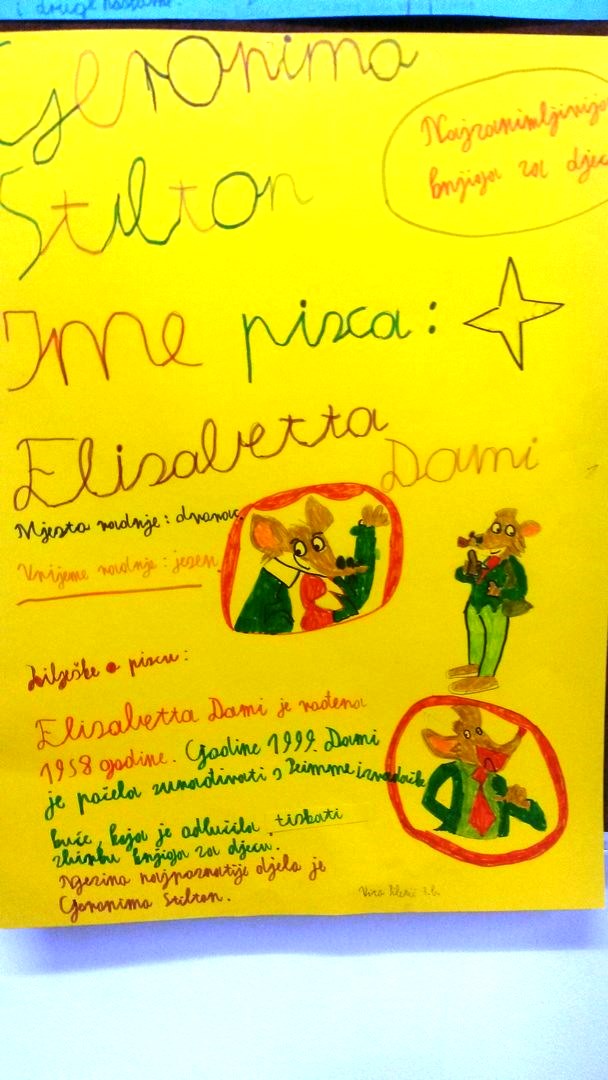 i druge nastame.
Geronimo
Stilton
Najzanimljivija
knjiga za djecu
Ime pisca:
Elisabetta
Dami
Mjesto radnje: dvorac
Vrijeme radnje: jesen.
Bilješke o piscu:
Elisabetta Dami je rođena
1958 godine. Godine 1999. Dami
je počela surađivati s Piemme izdavačke
kuće, koja je odlučila tiskati
zbirku knjiga za djecu.
Njezino najpoznatije djelo je
Geronimo Stilton.